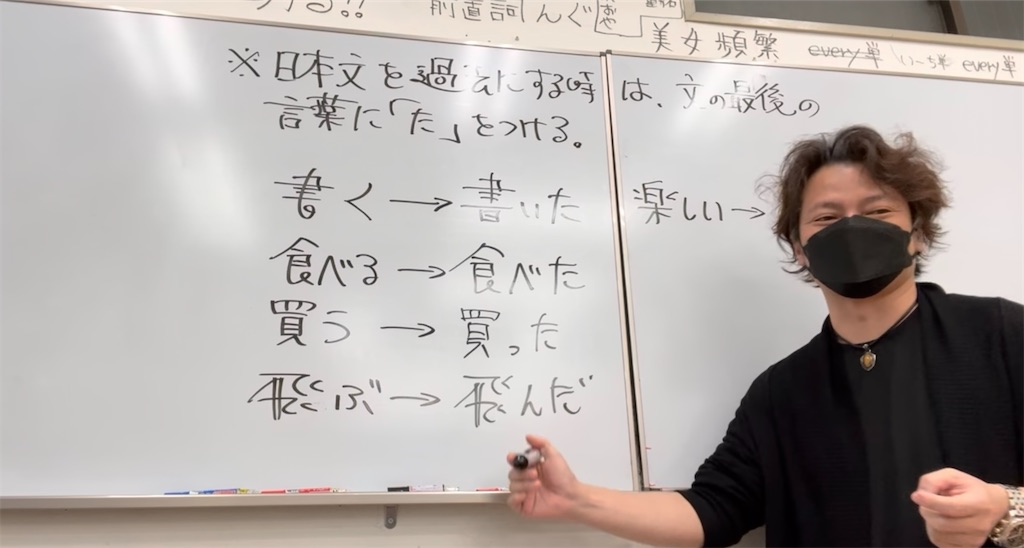 前置詞 んぐ
美女頻繁 every単 いーち単 every単
※日本文を過去にする時は、文の最後の
言葉に「た」をつける。
書く→書いた
楽しい→
食べる→食べた
買う→買った
飛ぶ→飛んだ